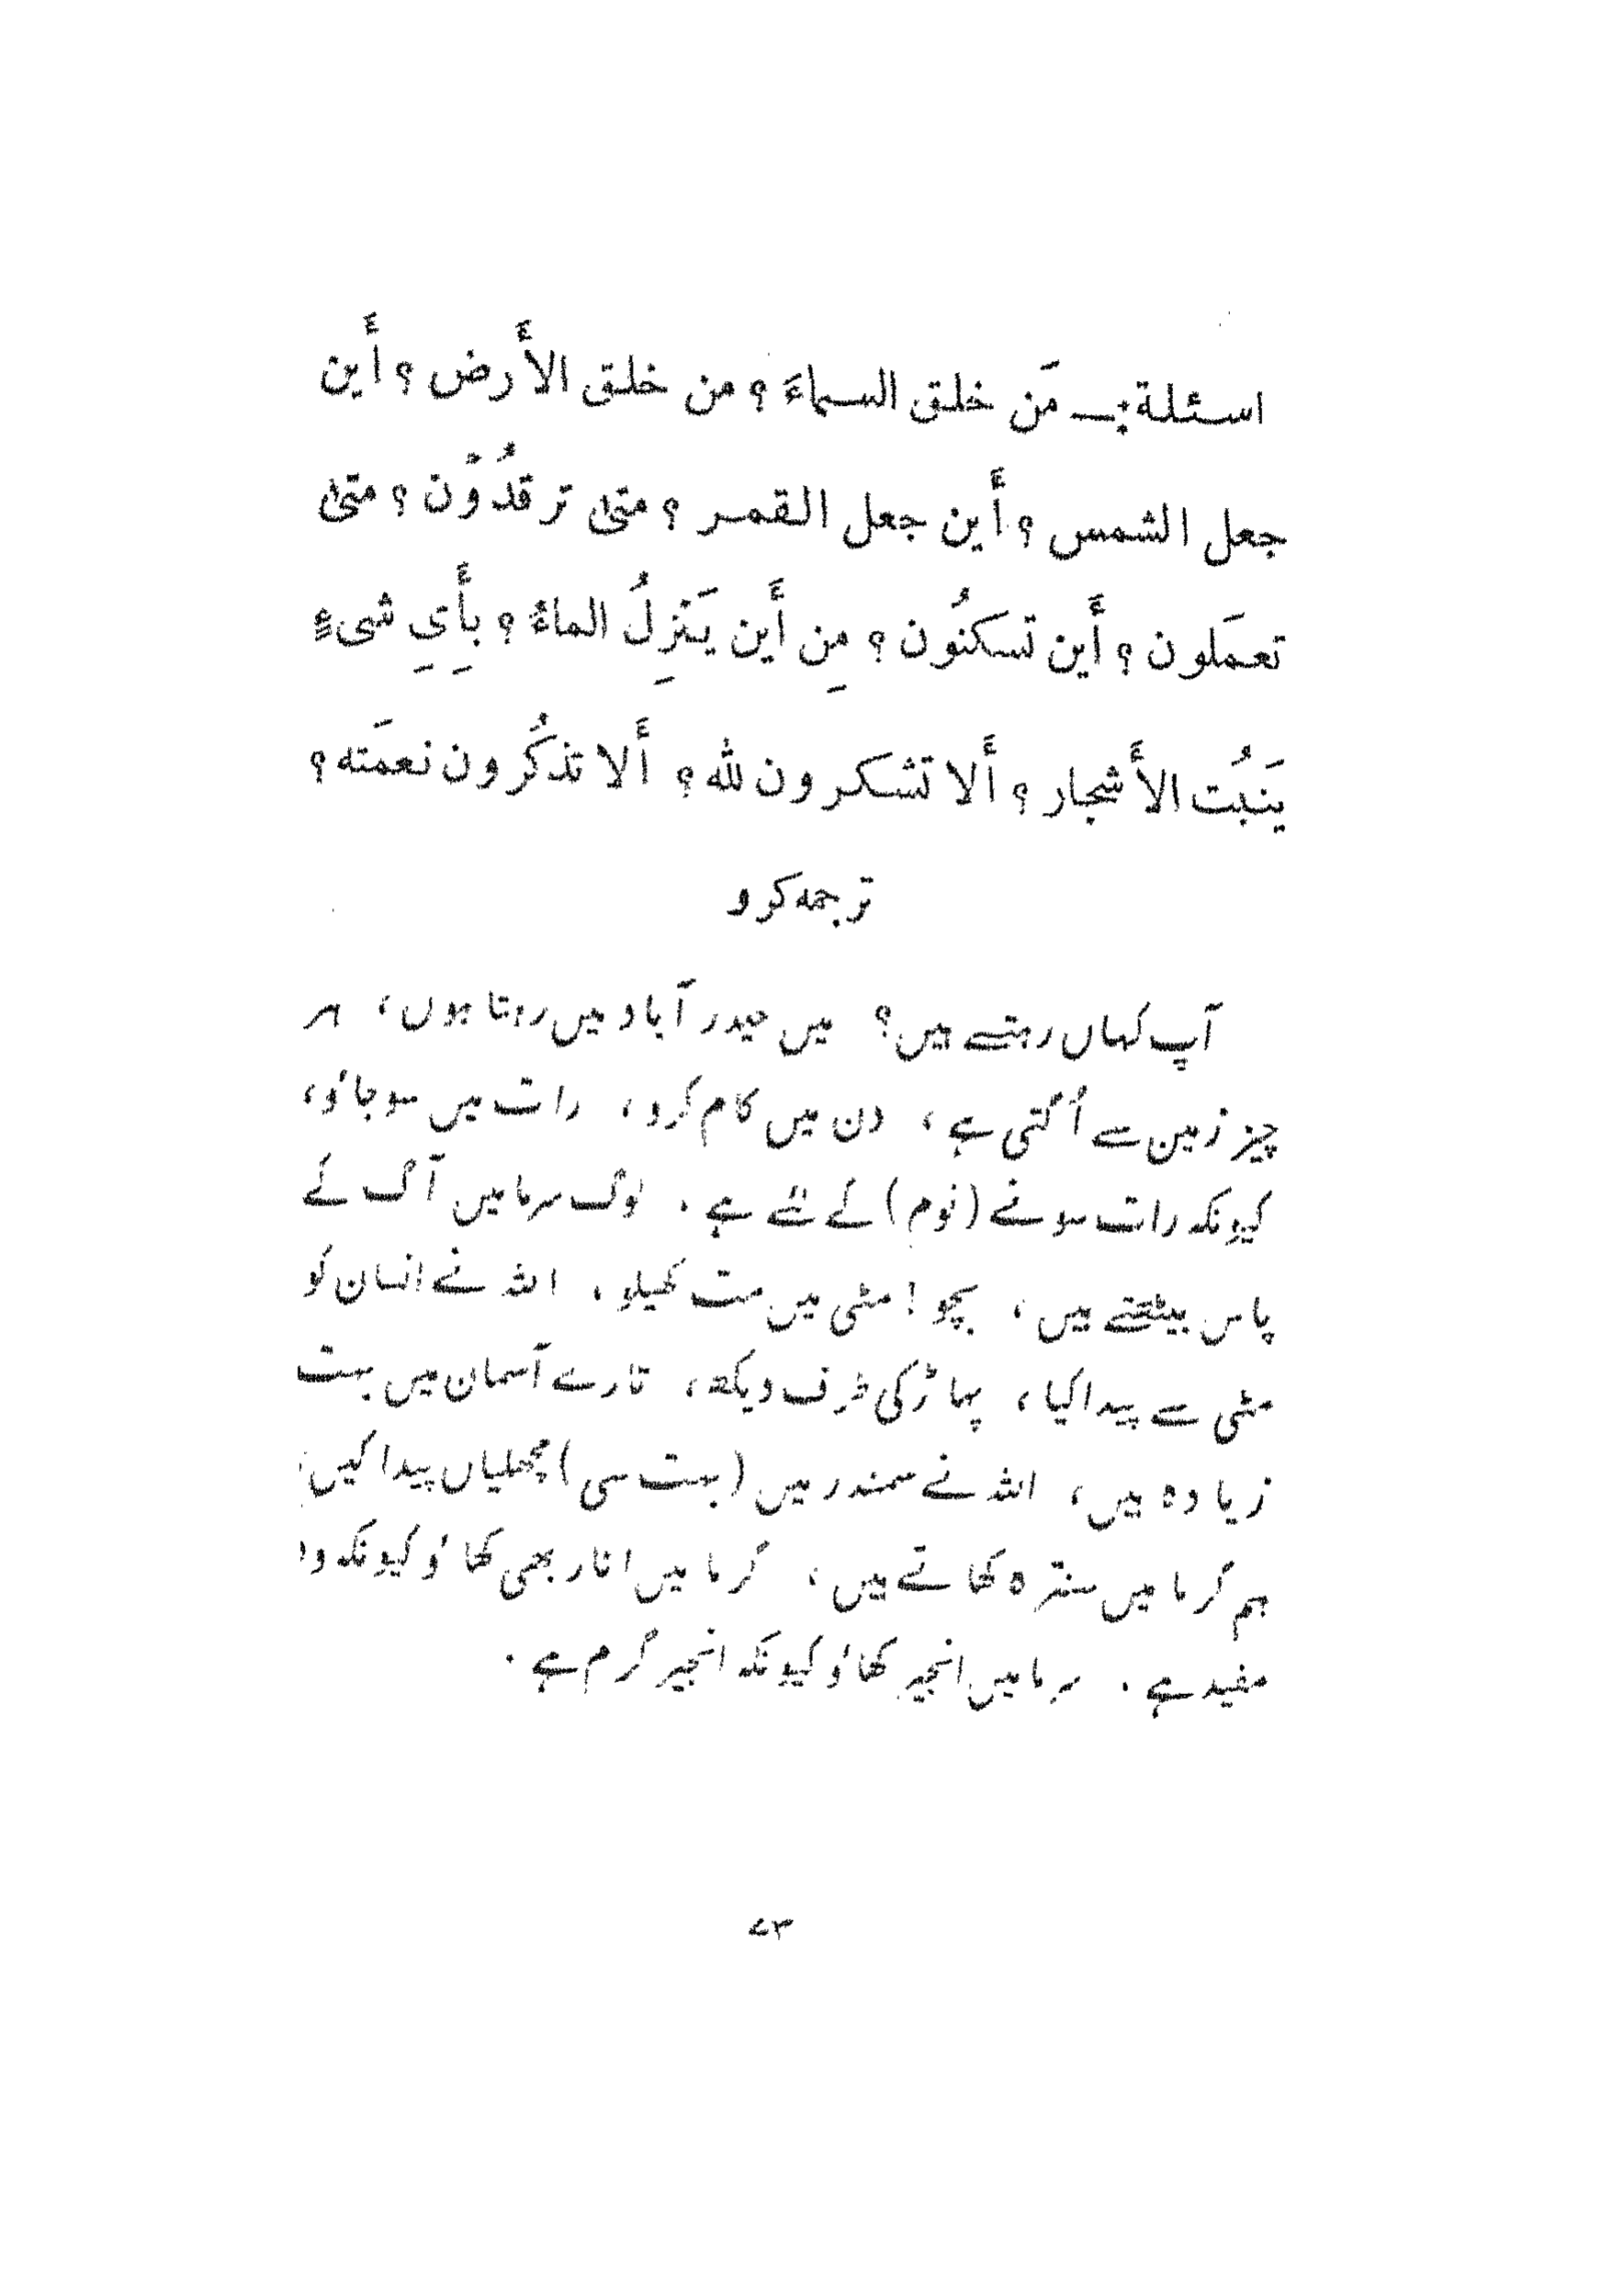 اسئلة :ـ مَن خلق السماءَ ؟ من خلق الأَرض ؟ أَين
جعل الشمس ؟ أَين جعل القمر ؟ متىٰ ترقدُوْن ؟ متىٰ
تعمَلون ؟ أَين تسكنُون ؟ مِن أَين يَنْزِلُ الماءُ ؟ بِأَيِ شیءٍ
يَنبُت الأَشجار ؟ أَلا تشكرون لله ؟ أَلا تذكُرون نعمَته ؟
ترجمہ کرو
آپ کہاں رہتے ہیں؟ میں حیدر آباد میں رہتا ہوں، ہر
چیز زمین سے اُگتی ہے، دن میں کام کرو، رات میں سوجاؤ،
کیونکہ رات سونے (نوم) کے لئے ہے. لوگ سرما میں آگ کے
پاس بیٹھتے ہیں، بچو! مٹی میں مت کھیلو. اللہ نے انسان کو
مٹی سے پیدا کیا، پہاڑ کی طرف دیکھ، تارے آسمان میں بہت
زیادہ ہیں، اللہ نے سمندر میں (بہت سی) مچھلیاں پیدا کیں،
ہم گرما میں سنترہ کھاتے ہیں، گرما میں انار بھی کھاؤ کیونکہ وہ
مفید ہے. سرما میں انجیر کھاؤ کیونکہ انجیر گرم ہے.
۷۳